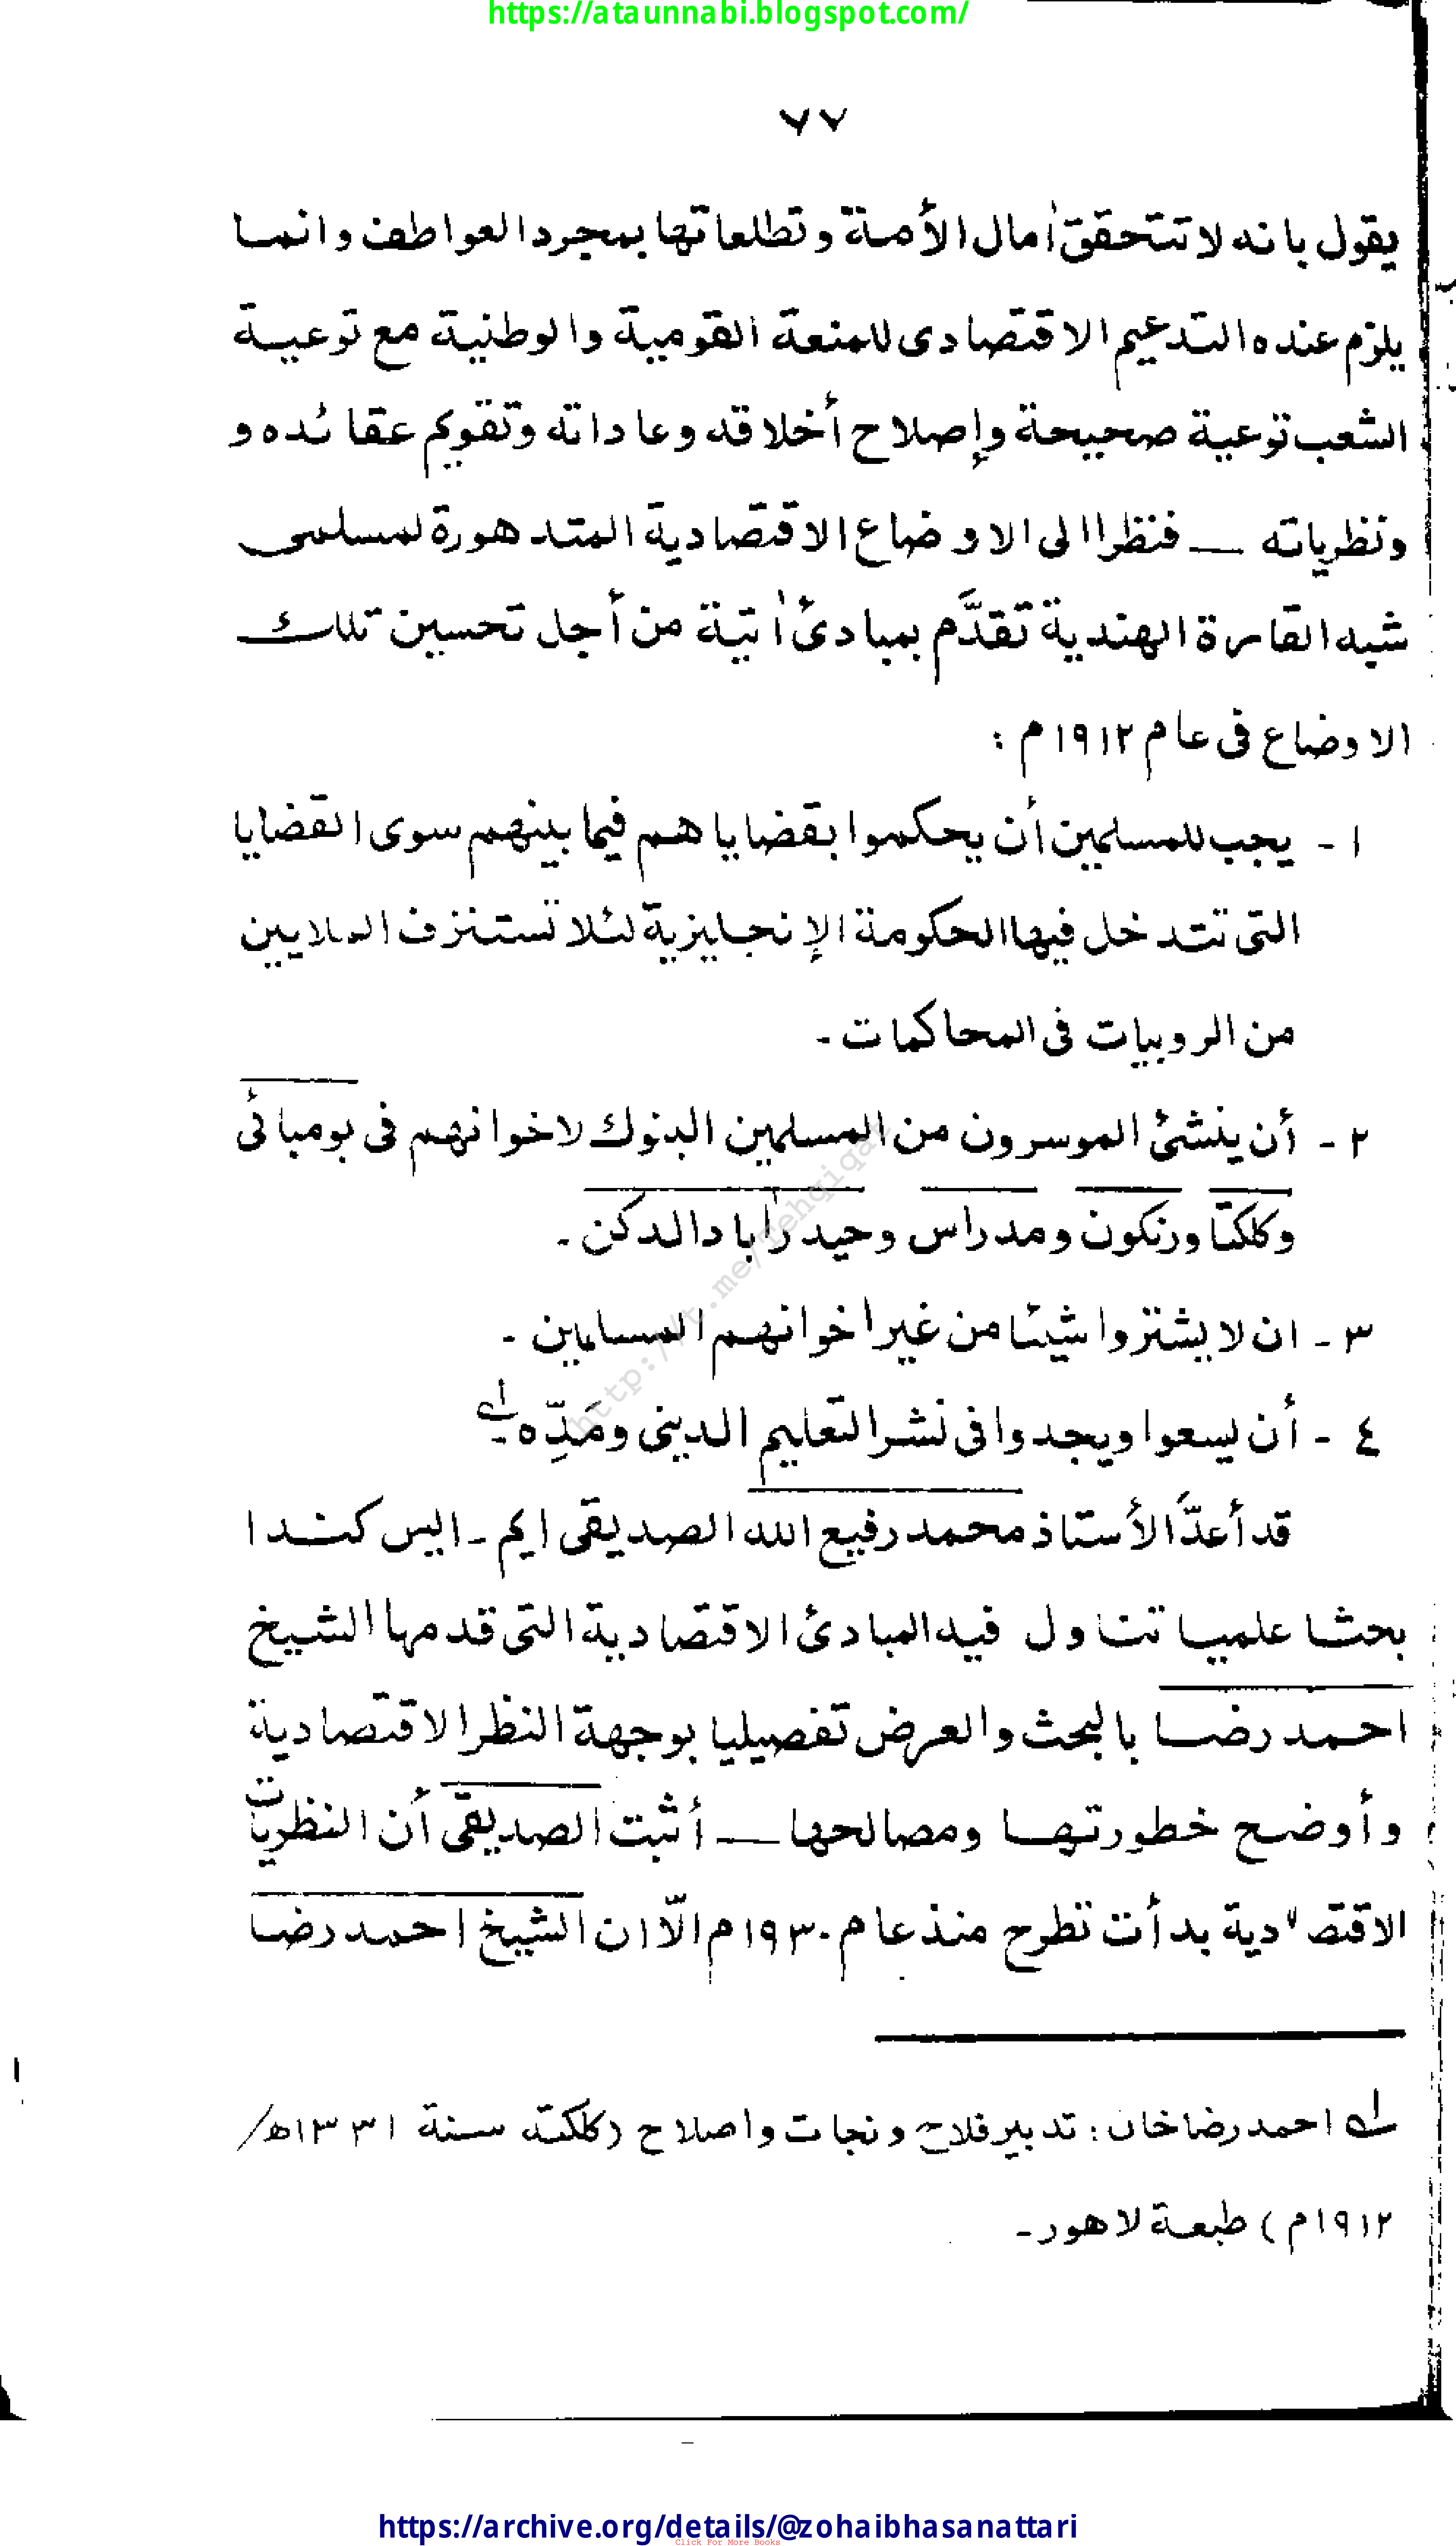 https://ataunnabi.blogspot.com/
٧٧
يقول بانه لا تتحقق اٰمال الأمة وتطلعاتها بمجرد العواطف وانما
يلزم عنده التدعيم الاقتصادى للمنعة القومية والوطنية مع توعية
الشعب توعية صحيحة وإصلاح أخلاقه وعاداته وتقويم عقائده و
ونظرياته — فنظرا الى الاوضاع الاقتصادية المتدهورة لمسلمى
شبه القارة الهندية تقدَّم بمبادئ اٰتية من أجل تحسين تلك
الاوضاع فى عام ١٩١٢م :
١ - يجب للمسلمين أن يحكموا بقضاياهم فيما بينهم سوى القضايا
التى تتدخل فيها الحكومة الإنجليزية لئلا تستنزف الملايين
من الروبيات فى المحاكمات -
٢ - أن ينشئ الموسرون من المسلمين البنوك لاخوانهم فى بومبائى
وكلكتا ورنكون ومدراس وحيدراٰباد الدكن -
٣ - ان لا يشتروا شيئا من غير اخوانهم المسلمين -
٤ - أن يسعوا ويجدوا فى نشر التعليم الدينى ومَدِّه ؎١
قد أعدَّ الأستاذ محمد رفيع الله الصديقى ايم - ايس كندا
بحثا علميا تناول فيه المبادئ الاقتصادية التى قدمها الشيخ
احمد رضا بالبحث والعرض تفصيليا بوجهة النظر الاقتصادية
وأوضح خطورتها ومصالحها — أثبت الصديقى أن النظريات
الاقتصادية بدأت تطرح منذ عام ١٩٣٠م الّا ان الشيخ احمد رضا
؎١ احمد رضا خان : تدبير فلاح ونجات واصلاح (كلكته سنة ١٣٣١ھ/
١٩١٢م) طبعة لاهور -
http://t.me/Tehqiqat
https://archive.org/details/@zohaibhasanattari
Click For More Books